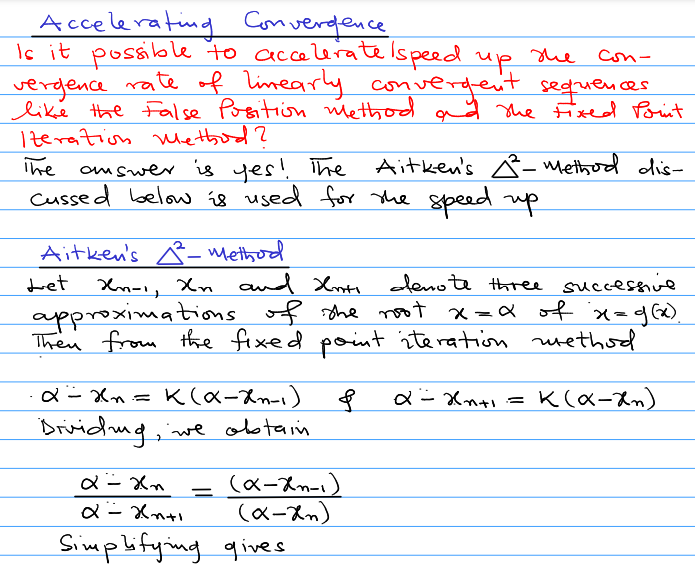 Accelerating Convergence
Is it possible to accelerate/speed up the con-
vergence rate of linearly convergent sequences
like the False Position Method and the Fixed Point
Iteration Method?
The answer is yes! The Aitken's Δ²-Method dis-
cussed below is used for the speed up
Aitken's Δ²-Method
Let xₙ₋₁, xₙ and xₙ₊₁ denote three successive
approximations of the root x=α of x=g(x).
Then from the fixed point iteration method
α-xₙ = K(α-xₙ₋₁) & α-xₙ₊₁ = K(α-xₙ)
Dividing, we obtain
(α-xₙ)/(α-xₙ₊₁) = (α-xₙ₋₁)/(α-xₙ)
Simplifying gives